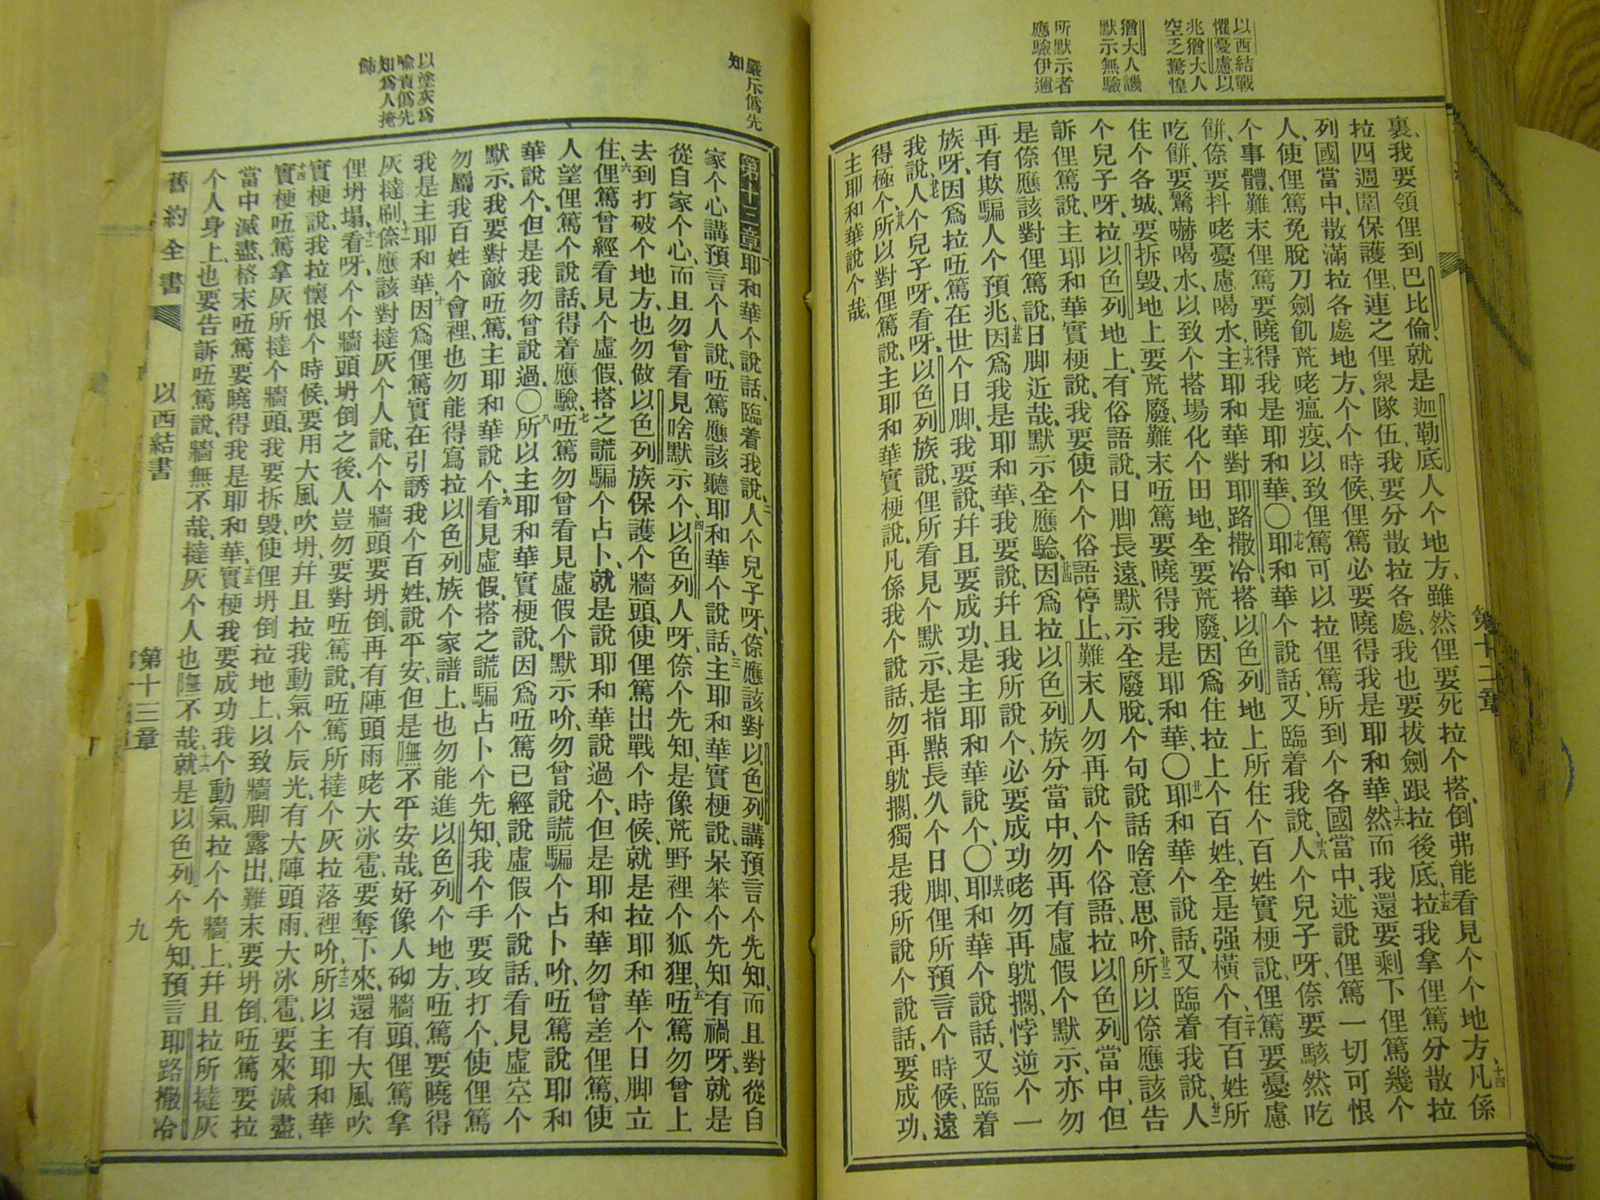 以西結戰
懼憂慮以
兆猶大人
空乏驚惶
猶大人譏
默示無驗
所默示者
應驗伊邇
裏、我要領俚到巴比倫、就是迦勒底人个地方、雖然俚要死拉个搭、倒弗能看見个个地方、十四凡係
拉四週圍保護俚、連之俚衆隊伍、我要分散拉各處、我也要拔劍跟拉後底、十五拉我拿俚篤分散拉
列國當中、散滿拉各處地方、个个時候、俚篤必要曉得我是耶和華、十六然而我還要剩下俚篤幾个
人、使俚篤免脫刀劍飢荒咾瘟疫、以致俚篤可以拉俚篤所到个各國當中、述說俚篤一切可恨
个事體、難末俚篤要曉得我是耶和華、〇十七耶和華个說話、又臨着我說、十八人个兒子呀、倷要駭然吃
餅、倷要抖咾憂慮喝水、十九主耶和華對耶路撒冷、搭以色列地上所住个百姓實梗說、俚篤要憂慮
吃餅、要驚嚇喝水、以致个搭場化个田地、全要荒廢、因爲住拉上个百姓、全是强橫个、二十有百姓所
住个各城、要拆毁、地上要荒廢、難末㕶篤要曉得我是耶和華、〇廿一耶和華个說話、又臨着我說、廿二人
个兒子呀、拉以色列地上、有俗語說、日脚長遠、默示全廢脫、个句說話啥意思吤、廿三所以倷應該告
訴俚篤說、主耶和華實梗說、我要使个个俗語停止、難末人勿再說个个俗語、拉以色列當中、但
是倷應該對俚篤說、日脚近哉、默示全應驗、廿四因爲拉以色列族分當中、勿再有虛假个默示、亦勿
再有欺騙人个預兆、廿五因爲我是耶和華、我要說、幷且我所說个、必要成功咾勿再躭擱、悖逆个一
族呀、因爲拉㕶篤在世个日脚、我要說、幷且要成功、是主耶和華說个、〇廿六耶和華个說話、又臨着
我說、廿七人个兒子呀、看呀、以色列族說、俚所看見个默示、是指點長久个日脚、俚所預言个時候、遠
得極个、廿八所以對俚篤說、主耶和華實梗說、凡係我个說話、勿再躭擱、獨是我所說个說話、要成功、
主耶和華說个哉、
第十二章
嚴斥僞先
知
以塗灰爲
喻責僞先
知爲人掩
飾
第十三章耶和華个說話、臨着我說、二人个兒子呀、倷應該對以色列講預言个先知、而且對從自
家个心講預言个人說、㕶篤應該聽耶和華个說話、三主耶和華實梗說、呆笨个先知有禍呀、就是
從自家个心、而且勿曾看見啥默示个、四以色列人呀、倷个先知、是像荒野裡个狐狸、五㕶篤勿曾上
去到打破个地方、也勿做以色列族保護个牆頭、使俚篤出戰个時候、就是拉耶和華个日脚立
住、六俚篤曾經看見个虛假、搭之謊騙个占卜、就是說耶和華說過个、但是耶和華勿曾差俚篤、使
人望俚篤个說話、得着應驗、七㕶篤勿曾看見虛假个默示吤、勿曾說謊騙个占卜吤、㕶篤說耶和
華說个、但是我勿曾說過、〇八所以主耶和華實梗說、因爲㕶篤已經說虛假个說話、看見虛空个
默示、我要對敵㕶篤、主耶和華說个、九看見虛假、搭之謊騙占卜个先知、我个手要攻打个、使俚篤
勿屬我百姓个會裡、也勿能得寫拉以色列族个家譜上、也勿能進以色列个地方、㕶篤要曉得
我是主耶和華、十因爲俚篤實在引誘我个百姓、說平安、但是嘸不平安哉、好像人砌牆頭、俚篤拿
灰撻刷、十一倷應該對撻灰个人說、个个牆頭要坍倒、再有陣頭雨咾大冰雹、要奪下來、還有大風吹
俚坍塌、十二看呀、个个牆頭坍倒之後、人豈勿要對㕶篤說、㕶篤所撻个灰拉落裡吤、十三所以主耶和華
實梗說、我拉懷恨个時候、要用大風吹坍、幷且拉我動氣个辰光、有大陣頭雨、大冰雹、要來滅盡、
十四實梗㕶篤拿灰所撻个牆頭、我要拆毁、使俚坍倒拉地上、以致牆脚露出、難末要坍倒、㕶篤要拉
當中滅盡、格末㕶篤要曉得我是耶和華、十五實梗我要成功我个動氣、拉个个牆上、幷且拉所撻灰
个人身上、也要告訴㕶篤說、牆無不哉、撻灰个人也嘸不哉、十六就是以色列个先知、預言耶路撒冷
舊約全書
以西結書
第十三章
九